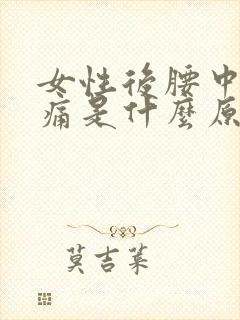 女性後腰中
痛是什麼原
莫吉萊